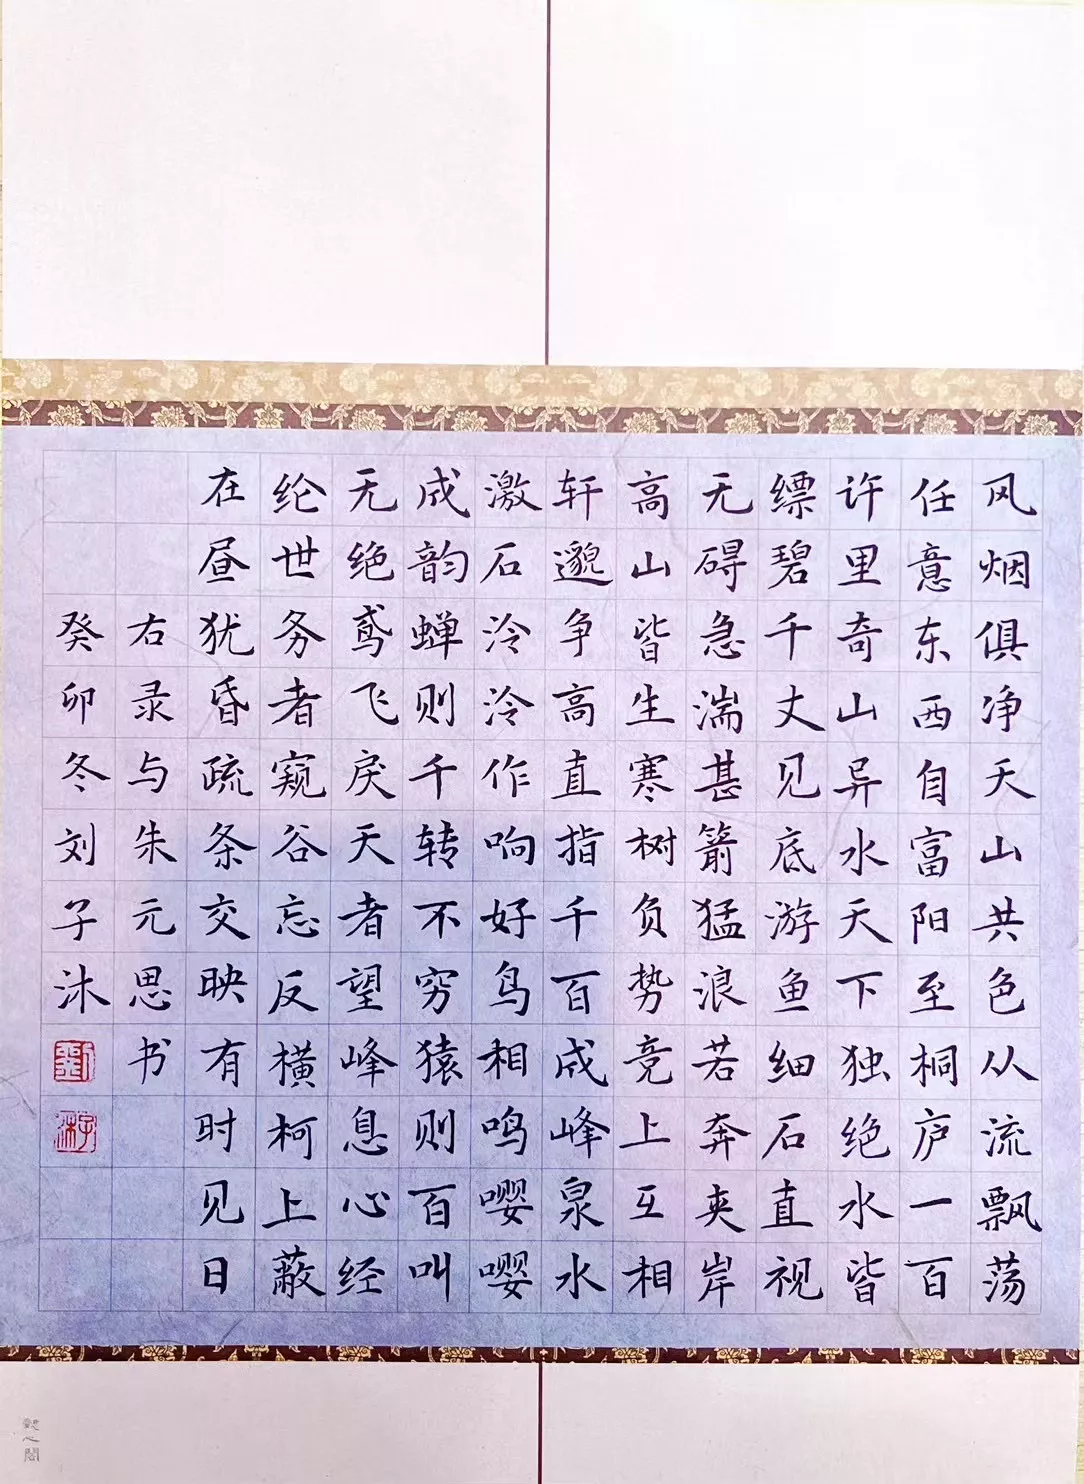 风烟俱净天山共色从流飘荡
任意东西自富阳至桐庐一百
许里奇山异水天下独绝水皆
缥碧千丈见底游鱼细石直视
无碍急湍甚箭猛浪若奔夹岸
高山皆生寒树负势竞上互相
轩邈争高直指千百成峰泉水
激石泠泠作响好鸟相鸣嘤嘤
成韵蝉则千转不穷猿则百叫
无绝鸢飞戾天者望峰息心经
纶世务者窥谷忘反横柯上蔽
在昼犹昏疏条交映有时见日
右录与朱元思书
癸卯冬刘子沐
刘
子沐
观心阁